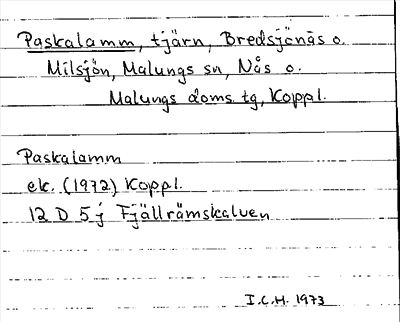 Paskalamm, tjärn, Bredsjönäs o.
Milsjön, Malungs sn, Nås o.
Malungs doms. tg, Koppl.
Paskalamm
ek. (1972) Koppl.
12 D 5 j Fjällrämskalven
I.C.H. 1973